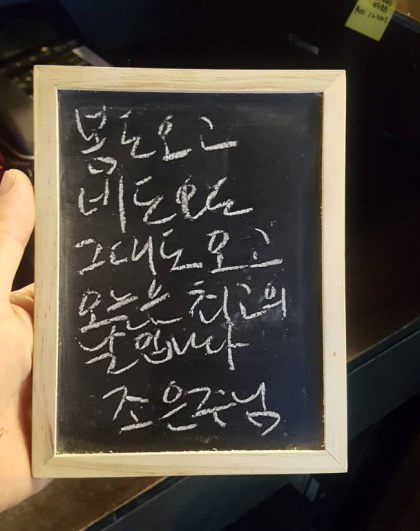 봄도 오고
비도 오는
그대도 오고
오늘은 최고의
날입니다
조은주님